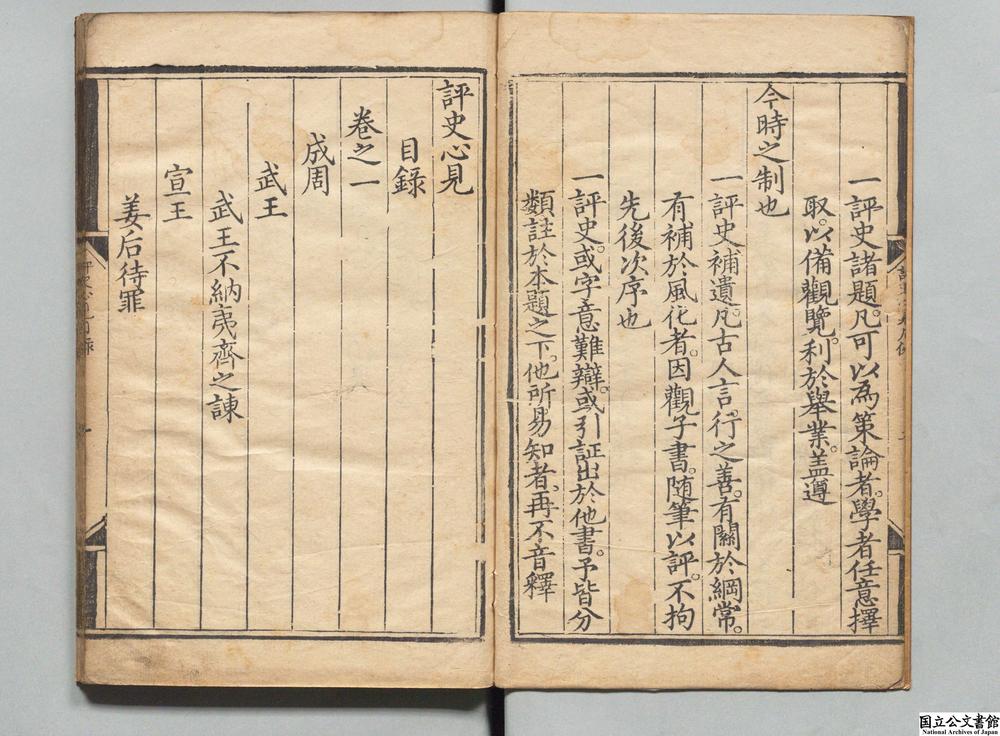 一評史諸題。凡可以為策論者。學者任意擇
取。以備觀覽。利於舉業。蓋遵
今時之制也
一評史補遺。凡古人言行之善。有關於綱常。
有補於風化者。因觀子書。隨筆以評。不拘
先後次序也
一評史。或字意難辯。或引証出於他書。予皆分
類註於本題之下。他所易知者、再不音釋
評史心見
目錄
卷之一
成周
武王
武王不納夷齊之諫
宣王
姜后待罪
国立公文書館
National Archives of Japan